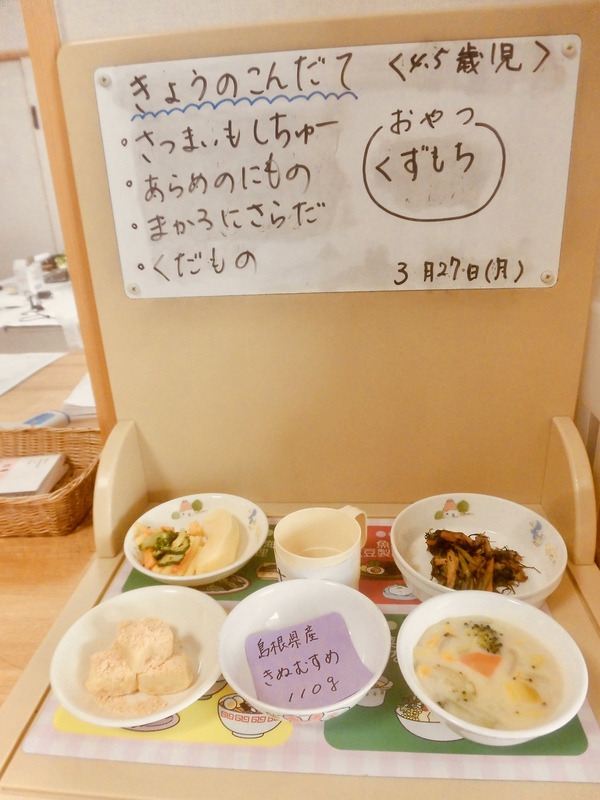 きょうのこんだて
〈4.5歳児〉
・さつまいもしちゅー
・あらめのにもの
・まかろにさらだ
・くだもの
おやつ
くずもち
3月27日(月)
魚
豆製
島根県産
きぬむすめ
110g